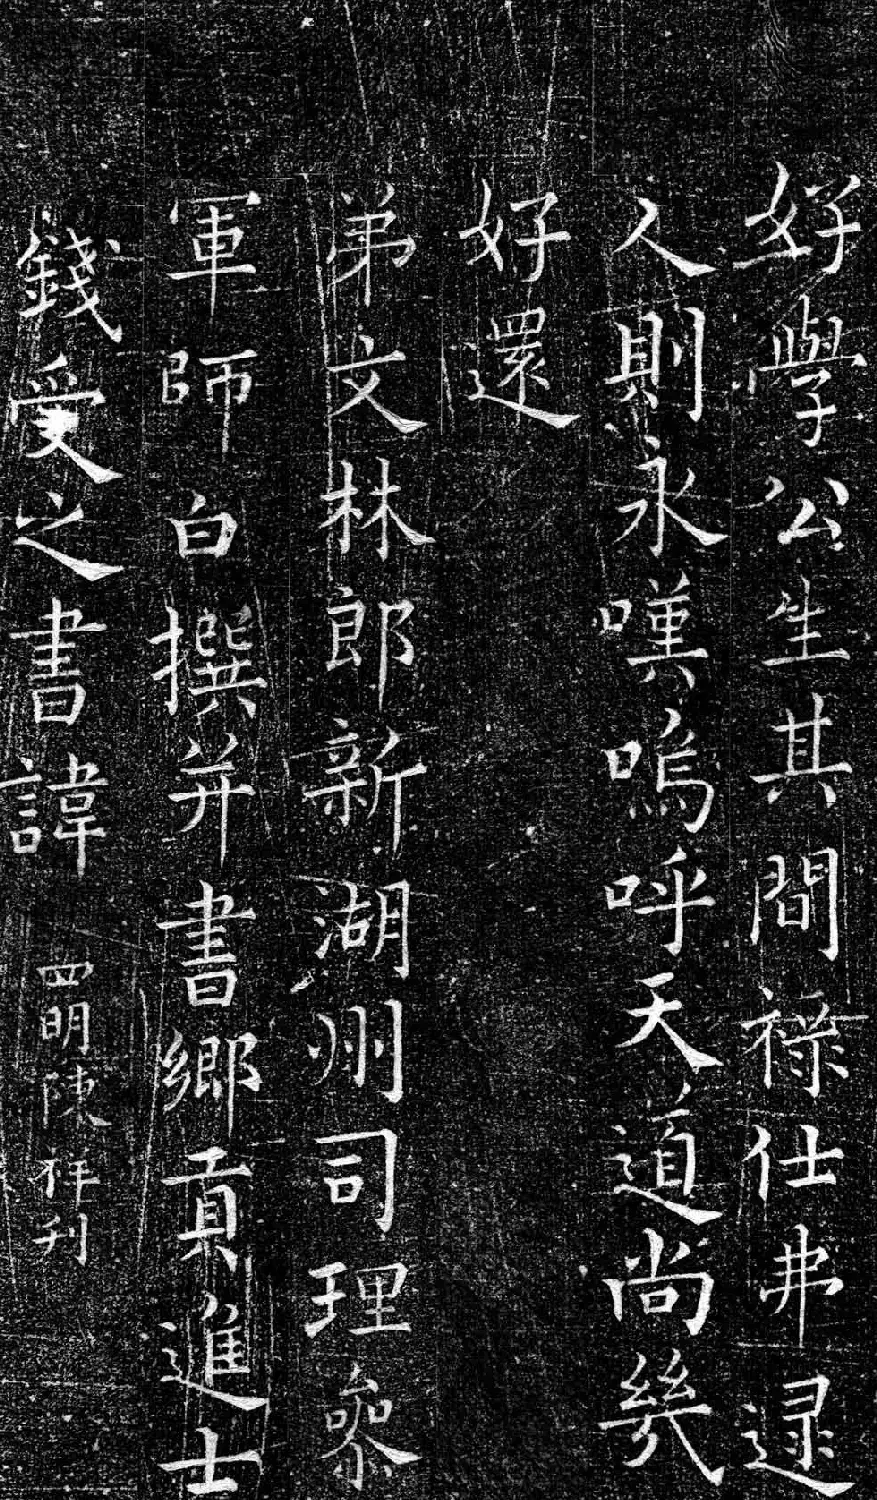 好學公生其間祿仕弗逯
人則永嘆嗚呼天道尚幾
好還
弟文林郎新湖州司理參
軍師白撰并書鄉貢進士
錢受之書諱 四明陳祥刊